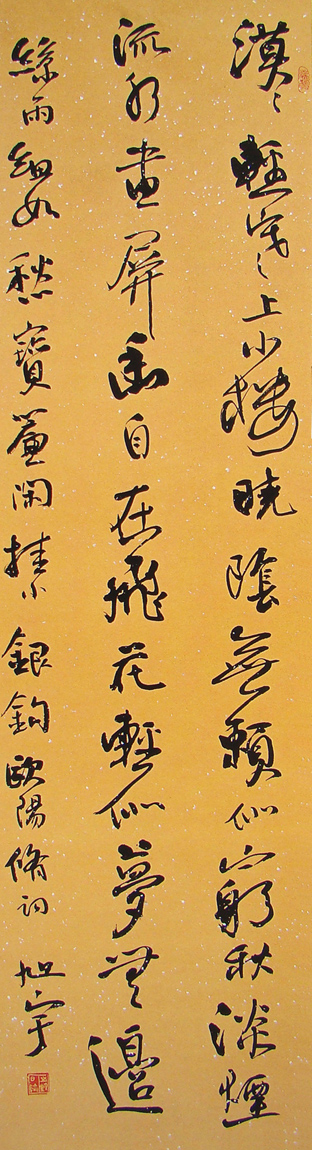 漠〻輕寒上小樓曉陰無賴似窮秋淡煙
流水畫屏幽自在飛花輕似夢無邊
絲雨細如愁寶簾閑挂小銀鉤歐陽脩詞 旭宇